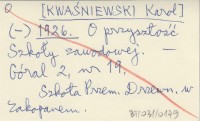 [KWAŚNIEWSKI Karol]
(-) 1926. O przyszłość
Szkoły zawodowej. —
Góral 2, nr 19.
Szkoła Przem. Drzewn. w
Zakopanem.